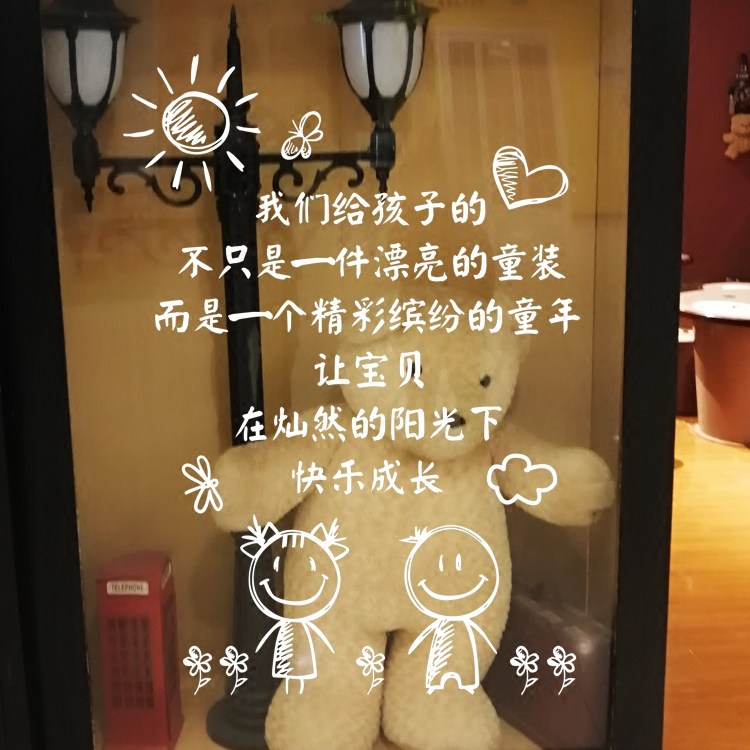 我们给孩子的
不只是一件漂亮的童装
而是一个精彩缤纷的童年
让宝贝
在灿然的阳光下
快乐成长
TELEPHONE